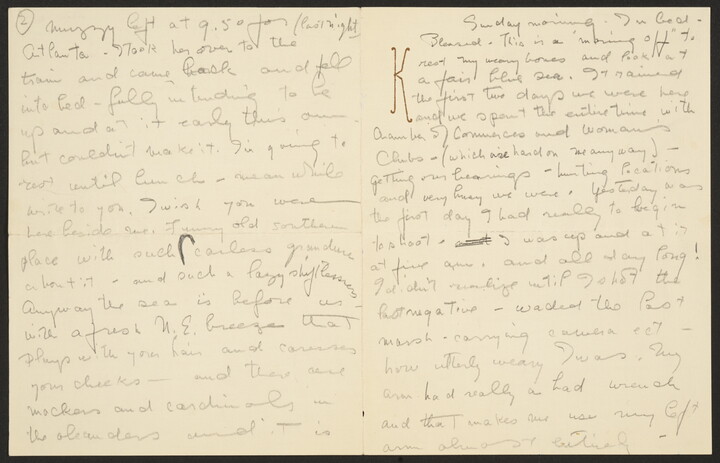 Sunday morning. In bed -
Blessed - This is a "morning off" to
rest my weary bones and look at
a fair blue sea. It rained
the first two days we were here
and we spent the entire time with
Chamber of Commerces and Womans
Clubs - (which are hard on me anyway) -
getting our bearings - hunting locations
and very busy we were. Yesterday was
the first day I had really to begin
to shoot - I was up and at it
at five a.m. and all day long!
I didn't realize until I shot the
last negative - waded the last
marsh - carrying camera ect -
how utterly weary I was. My
arm had really a bad wrench
and that makes me use my left
arm almost entirely -
②
Muzzy left at 9.50 for (last night)
Atlanta - I took her over to the
train and came back and fell
into bed - fully intending to be
up and at it early this a.m.
but couldn't make it. I'm going to
rest until lunch - meanwhile
write to you. I wish you were
here beside me. Funny old southern
place with such careless grandeur
about it - and such a lazy shiftlessness
Anyway the sea is before us -
with a fresh N.E. breeze that
plays with your hair and caresses
your cheeks - and there are
mockers and cardinals in
the oleanders and it is